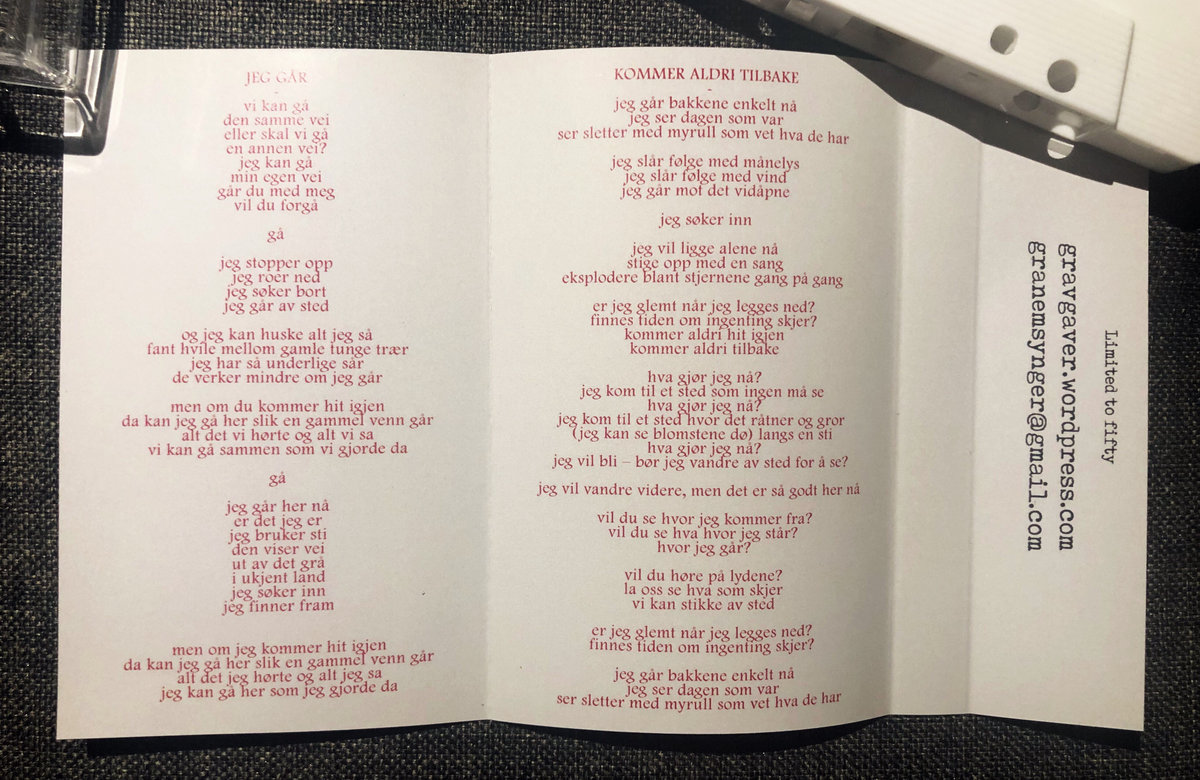 JEG GÅR
-
vi kan gå
den samme vei
eller skal vi gå
en annen vei?
jeg kan gå
min egen vei
går du med meg
vil du forgå
gå
jeg stopper opp
jeg roer ned
jeg søker bort
jeg går av sted
og jeg kan huske alt jeg så
fant hvile mellom gamle tunge trær
jeg har så underlige sår
de verker mindre om jeg går
men om du kommer hit igjen
da kan jeg gå her slik en gammel venn går
alt det vi hørte og alt vi sa
vi kan gå sammen som vi gjorde da
gå
jeg går her nå
er det jeg er
jeg bruker sti
den viser vei
ut av det grå
i ukjent land
jeg søker inn
jeg finner fram
men om jeg kommer hit igjen
da kan jeg gå her slik en gammel venn går
alt det jeg hørte og alt jeg sa
jeg kan gå her som jeg gjorde da
KOMMER ALDRI TILBAKE
-
jeg går bakkene enkelt nå
jeg ser dagen som var
ser sletter med myrull som vet hva de har
jeg slår følge med månelys
jeg slår følge med vind
jeg går mot det vidåpne
jeg søker inn
jeg vil ligge alene nå
stige opp med en sang
eksplodere blant stjernene gang på gang
er jeg glemt når jeg legges ned?
finnes tiden om ingenting skjer?
kommer aldri hit igjen
kommer aldri tilbake
hva gjør jeg nå?
jeg kom til et sted som ingen må se
hva gjør jeg nå?
jeg kom til et sted hvor det råtner og gror
(jeg kan se blomstene dø) langs en sti
hva gjør jeg nå?
jeg vil bli – bør jeg vandre av sted for å se?
jeg vil vandre videre, men det er så godt her nå
vil du se hvor jeg kommer fra?
vil du se hva hvor jeg står?
hvor jeg går?
vil du høre på lydene?
la oss se hva som skjer
vi kan stikke av sted
er jeg glemt når jeg legges ned?
finnes tiden om ingenting skjer?
jeg går bakkene enkelt nå
jeg ser dagen som var
ser sletter med myrull som vet hva de har
Limited to fifty
gravgaver.wordpress.com
granemsynger@gmail.com